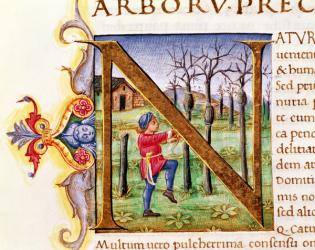 ARBORV. PREC
NATVR
uenient
& huma
Sed peti
nuria p
te cum
ca pend
delitian
dem ar
Domiti
sed alio
Q. Catu
Multum uero pulcherrima, consensu